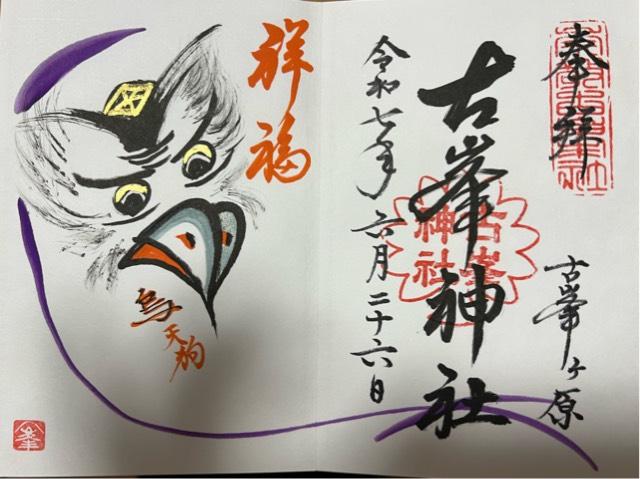 奉拝
古峯ヶ原
古峯神社
古峯神社
令和七年六月二十六日
祥福
烏天狗